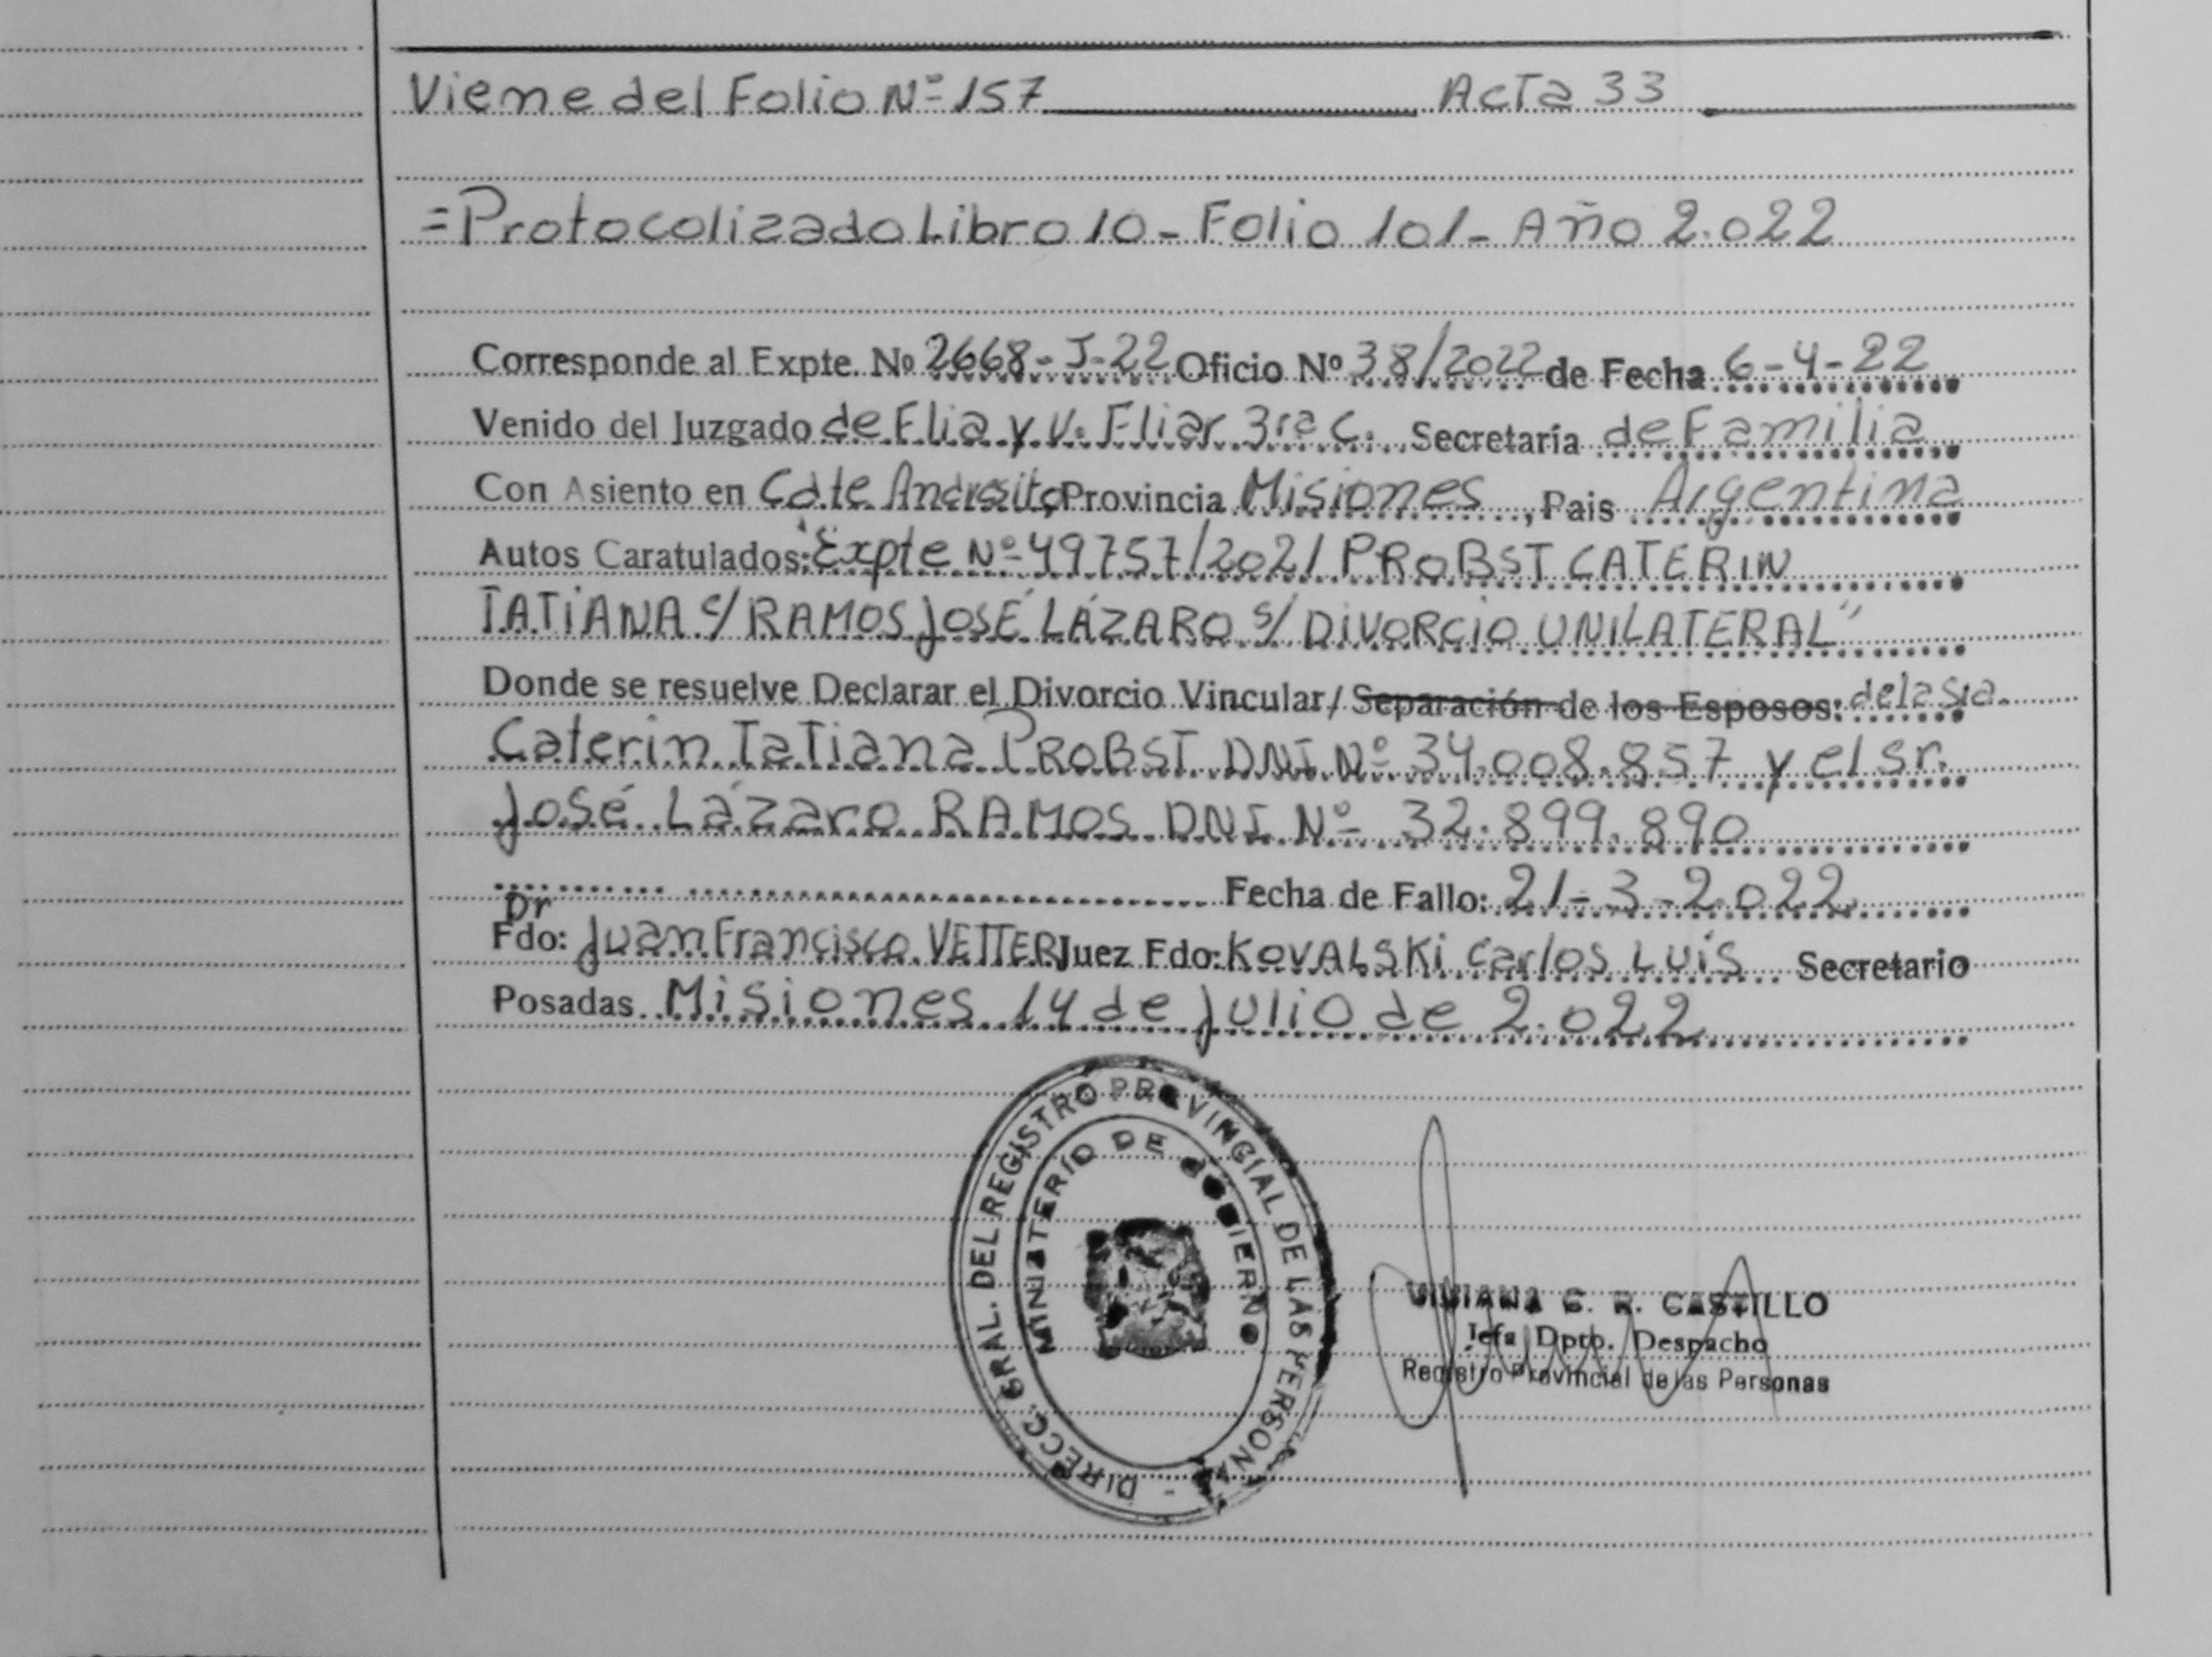 Viene del Folio Nº 157 Acta 33
=Protocolizado Libro 10 - Folio 101 - Año 2.022
Corresponde al Expte. Nº 2668-J-22 Oficio Nº 38/2022 de Fecha 6-4-22
Venido del Juzgado de Flia y V. Fliar 3ra C. Secretaría de Familia
Con Asiento en Cdte. Andresito Provincia Misiones, Pais Argentina
Autos Caratulados: "Expte Nº 49757/2021 PROBST CATERIN
TATIANA c/ RAMOS JOSÉ LÁZARO s/ DIVORCIO UNILATERAL"
Donde se resuelve Declarar el Divorcio Vincular/ Separación de los Esposos: de la Sra.
Caterin Tatiana PROBST DNI Nº 34.008.857 y el sr.
José Lázaro RAMOS DNI Nº 32.899.890
Fecha de Fallo: 21-3-2.022
Dr
Fdo: Juan Francisco VETTER Juez Fdo: KOVALSKI Carlos Luis Secretario
Posadas Misiones 14 de Julio de 2.022
DIRECC. GRAL. DEL REGISTRO PROVINCIAL DE LAS PERSONAS -
MINISTERIO DE GOBIERNO
VIVIANA C. R. CASTILLO
Jefa Dpto. Despacho
Registro Provincial de las Personas